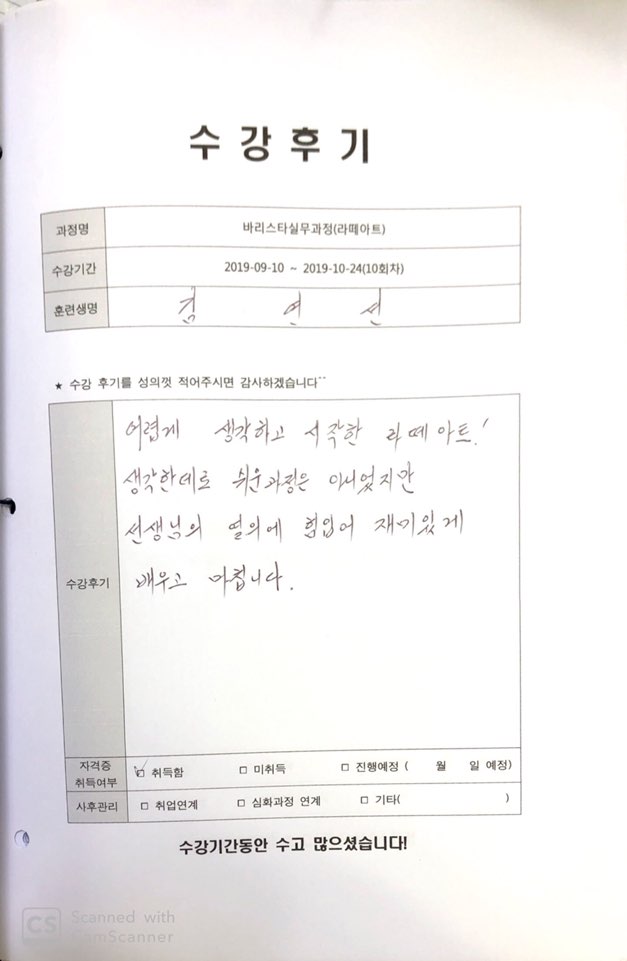 수강후기
과정명 바리스타실무과정(라떼아트)
수강기간 2019-09-10 ~ 2019-10-24(10회차)
훈련생명 김 연 선
★ 수강 후기를 성의껏 적어주시면 감사하겠습니다^^
어렵게 생각하고 시작한 라떼아트!
생각한데로 쉬운과정은 아니었지만
선생님의 열의에 힘입어 재미있게
수강후기 배우고 마칩니다.
자격증
취득여부 ☑ 취득함 □ 미취득 □ 진행예정 ( 월 일 예정)
사후관리 □ 취업연계 □ 심화과정 연계 □ 기타( )
수강기간동안 수고 많으셨습니다!
CS Scanned with
CamScanner